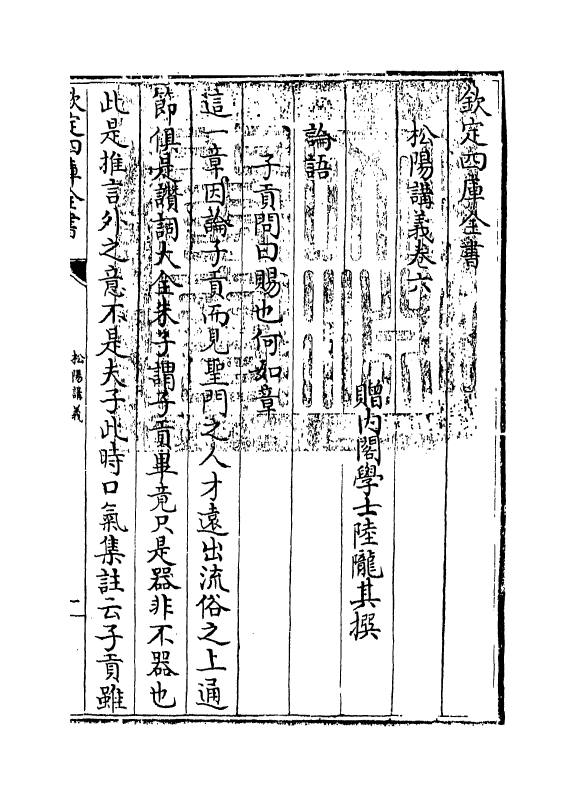 欽定四庫全書
松陽講義卷六
贈內閣學士陸隴其撰
論語
子貢問曰賜也何如章
這一章因論子貢而見聖門之人才遠出流俗之上通
節俱是讚詞大全朱子謂子貢畢竟只是器非不器也
此是推言外之意不是夫子此時口氣集註云子貢雖
欽定四庫全書
松陽講義